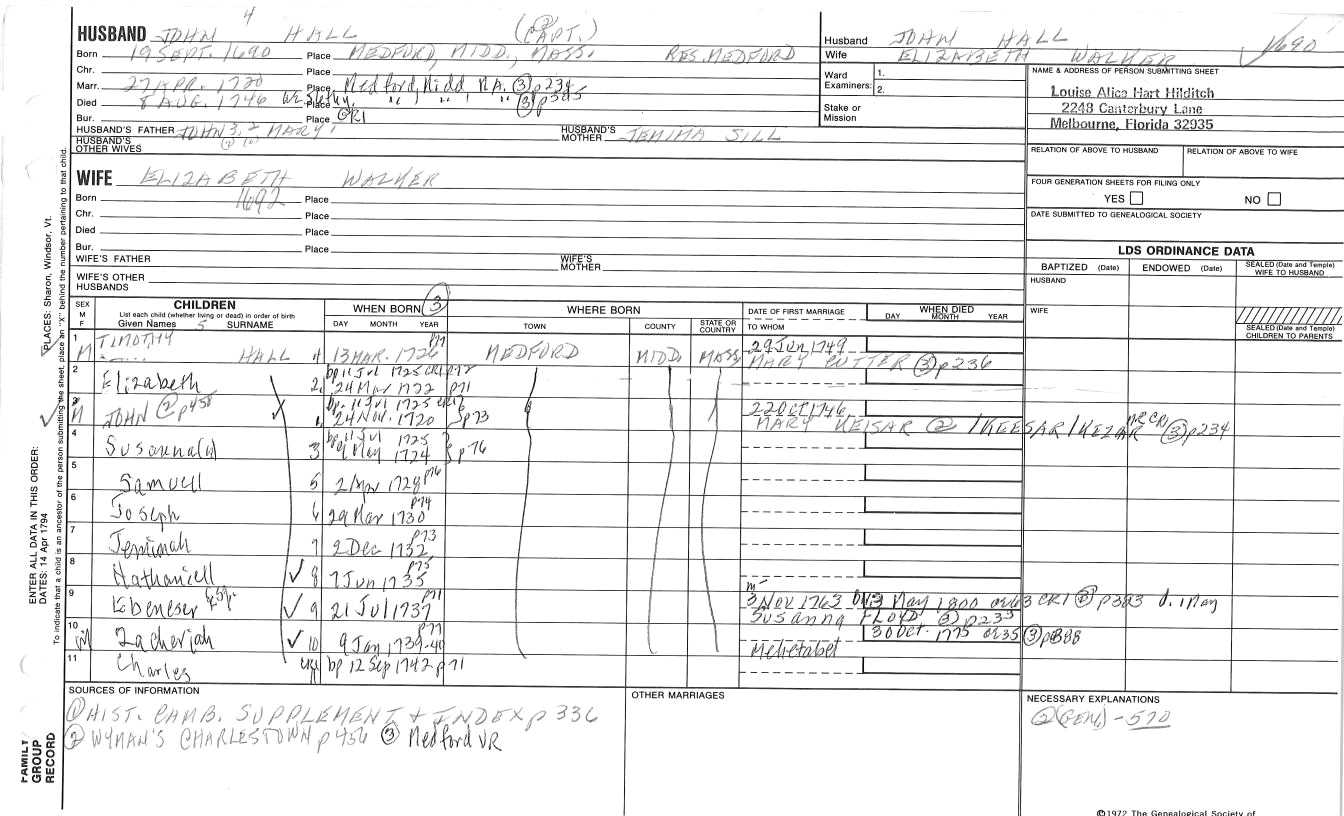 4
HUSBAND JOHN HALL (CAPT.)
Born 19 SEPT. 1690 Place MEDFORD, MIDD., MASS. RES. MEDFORD
Chr. Place
Marr. 27 APR. 1720 Place Medford, Midd MA. ③ p234
Died 8 AUG. 1746 Place " " " ③ p385
Bur. Place GR1
HUSBAND'S FATHER JOHN 3, 2 MARY 1 HUSBAND'S MOTHER JEMIMA SILL
HUSBAND'S OTHER WIVES
Husband JOHN HALL 1690
Wife ELIZABETH WALKER
Ward Examiners: 1.
2.
Stake or Mission
NAME & ADDRESS OF PERSON SUBMITTING SHEET
Louise Alice Hart Hilditch
2248 Canterbury Lane
Melbourne, Florida 32935
RELATION OF ABOVE TO HUSBAND RELATION OF ABOVE TO WIFE
FOUR GENERATION SHEETS FOR FILING ONLY
YES NO
DATE SUBMITTED TO GENEALOGICAL SOCIETY
WIFE ELIZABETH WALKER
Born 1692 Place
Chr. Place
Died Place
Bur. Place
WIFE'S FATHER WIFE'S MOTHER
WIFE'S OTHER HUSBANDS
LDS ORDINANCE DATA
BAPTIZED (Date) ENDOWED (Date) SEALED (Date and Temple) WIFE TO HUSBAND
HUSBAND
WIFE
SEALED (Date and Temple) CHILDREN TO PARENTS
SEX M F
CHILDREN
List each child (whether living or dead) in order of birth
Given Names 5 SURNAME
WHEN BORN ③
DAY MONTH YEAR
WHERE BORN
TOWN COUNTY STATE OR COUNTRY
DATE OF FIRST MARRIAGE
TO WHOM
WHEN DIED
DAY MONTH YEAR
1 M TIMOTHY HALL 4 13 MAR. 1726 p77 MEDFORD MIDD. MASS 29 Jun 1749
MARY CUTTER ③ p236
2 Elizabeth 2 bp 11 Jul 1725 CR1 p72
24 Mar 1722 p71
3 M JOHN ② p456 1 bp. 11 Jul 1725
24 Nov. 1720 p73 22 OCT 1746
MARY KEISAR ② /KEESAR/KEZAR CR1 ③ p234
4 Susanna(h) 3 bp 11 Jul 1725
9 May 1724 p76
5 Samuell 5 2 Apr 1728 p76
6 Joseph 6 29 Mar 1730 p74
7 Jemimah 7 2 Dec 1732 p73
8 Nathaniell 8 7 Jun 1735 p75
9 Ebeneser Esq. 9 21 Jul 1737 p71 m
3 Nov 1763 13 May 1800 or 63 CR1 p383 d. 1 May
Susanna FLOYD ③ p235
10 M Zacheriah 10 9 Jan 1739-40 p77 30 Oct. 1775 or 35 ③ p388
Mehetabel
11 Charles bp 12 Sep 1742 p71
SOURCES OF INFORMATION
① HIST. CAMB. SUPPLEMENT + INDEX p 336
② WYMAN'S CHARLESTOWN p 456 ③ Medford VR
OTHER MARRIAGES
NECESSARY EXPLANATIONS
② (GEN) - 570
©1972 The Genealogical Society of
PLACES: Sharon, Windsor, Vt.
ENTER ALL DATA IN THIS ORDER:
DATES: 14 Apr 1794
To indicate that a child is an ancestor of the person submitting the sheet, place an "X" behind the number pertaining to that child.
FAMILY GROUP RECORD